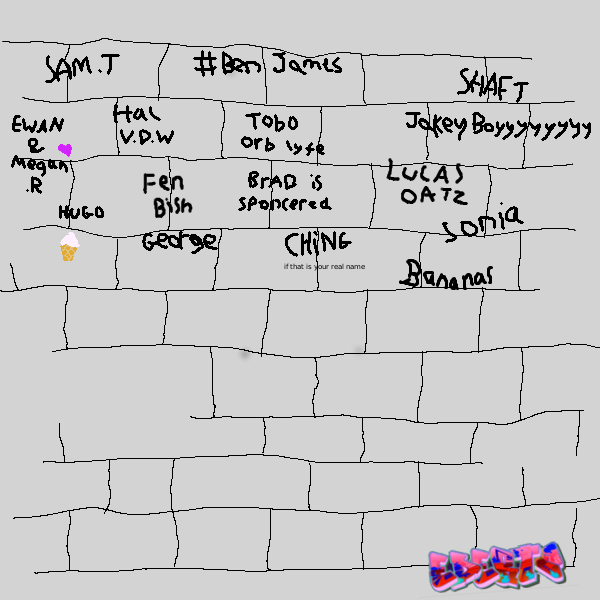 SAM.T
#Ben James
SHAFT
EWAN
&
Megan
.R
Hal
V.D.W
TOBO
orb lyfe
Jakey Boyyyyyyyy
HUGO
Fen
Bish
BrAD is
sponcered
LUCAS
OATZ
sonia
George
CHiNG
if that is your real name
Bananas